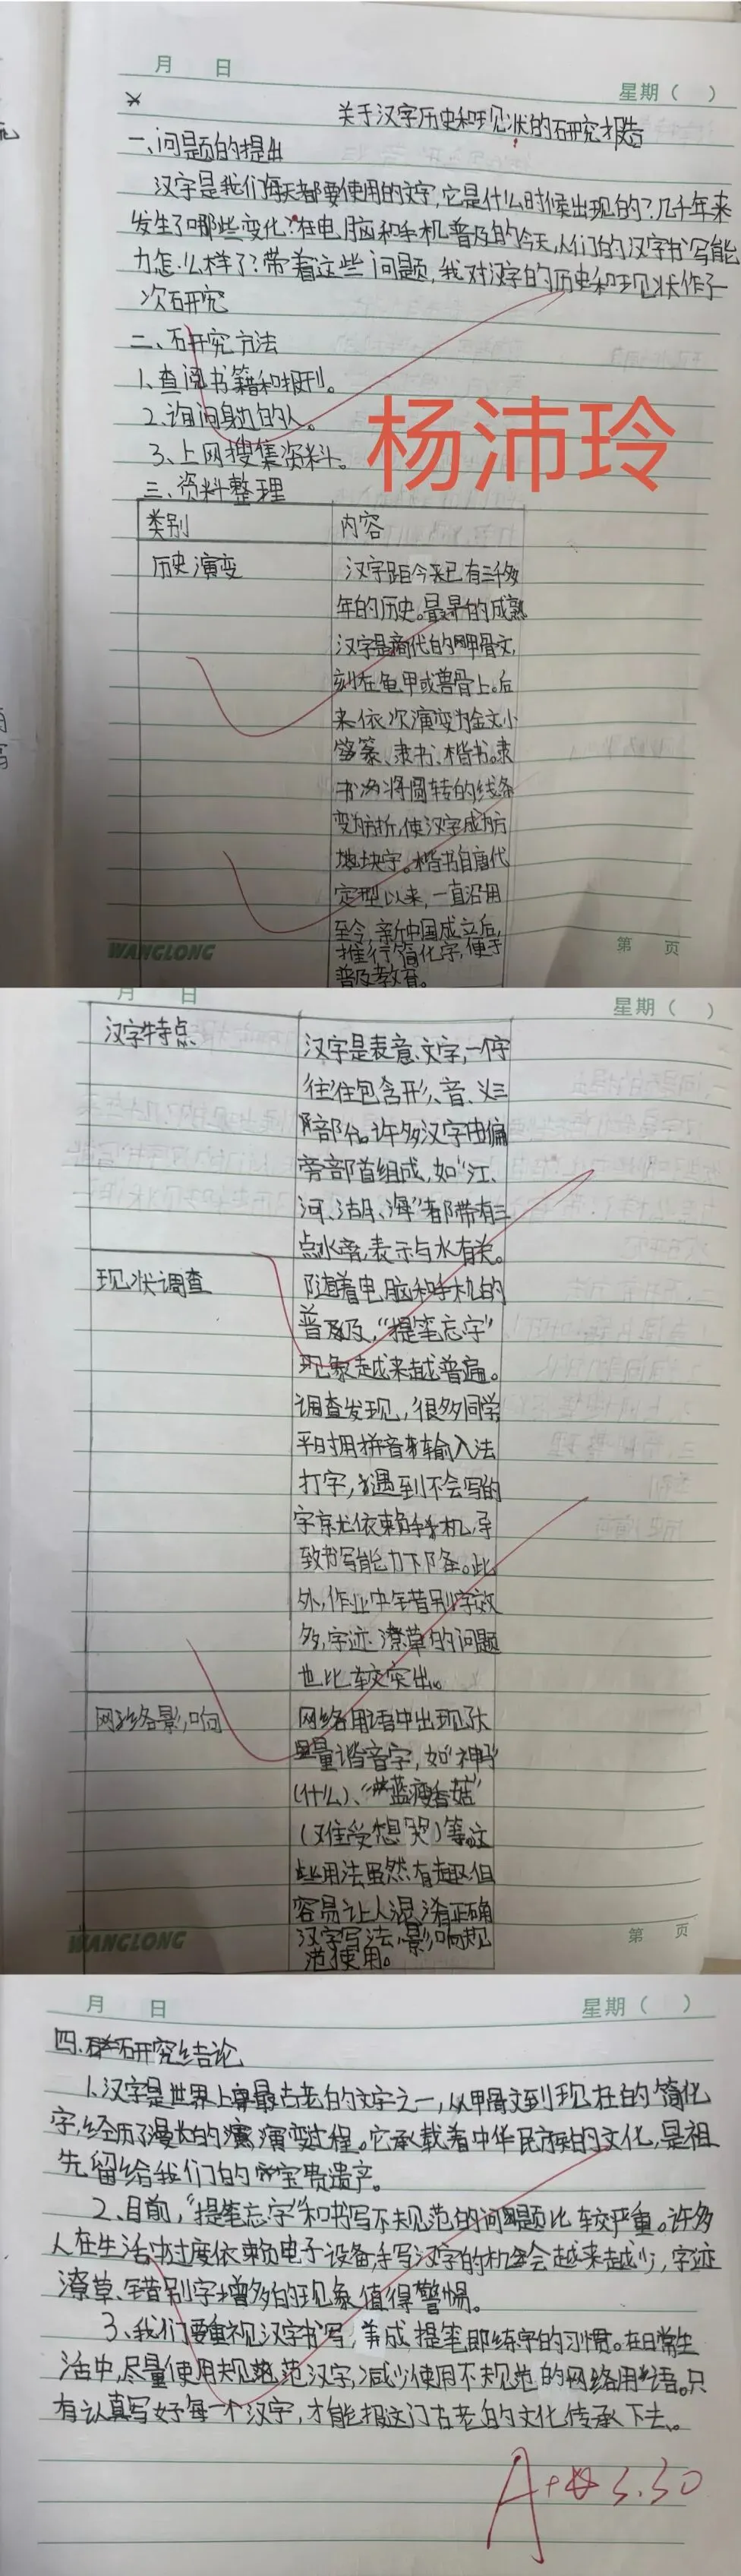 月 日
星期( )
关于汉字历史和现状的研究报告
一、问题的提出
汉字是我们每天都要使用的文字,它是什么时候出现的?几千年来
发生了哪些变化?在电脑和手机普及的今天,人们的汉字书写能
力怎么样了?带着这些问题,我对汉字的历史和现状作了一
次研究
二、研究方法
1、查阅书籍和报刊。
2、询问身边的人。
3、上网搜集资料。
杨沛玲
三、资料整理
类别 内容
历史演变 汉字距今天已有三千多
年的历史。最早的成熟
汉字是商代的甲骨文,
刻在龟甲或兽骨上。后
来依次演变为金文小
篆、隶书、楷书。隶
书将圆转的线条
变为方折,使汉字成为方
块字。楷书自唐代
定型以来,一直沿用
至今,新中国成立后,
推行简化字,便于
普及教育。
WANGLONG 第 页
月 日 星期( )
汉字特点 汉字是表意文字,一个字
往往包含形、音、义三
部分。许多汉字由偏
旁部首组成,如“江、
河、湖、海”都带有三
点水旁,表示与水有关。
现状调查 随着电脑和手机的
普及,“提笔忘字”
现象越来越普遍。
调查发现,很多同学
平时用拼音输入法
打字,遇到不会写的
字就依赖手机,导
致书写能力下降。此
外,作业中错别字较
多,字迹潦草的问题
也比较突出。
网络影响 网络用语中出现了大
量谐音字,如“神马”
(什么)、“蓝瘦香菇”
(难受想哭)等。这
些用法虽然有趣,但
容易让人混淆正确
汉字写法,影响规
范使用。
WANGLONG 第 页
月 日 星期( )
四、研究结论
1、汉字是世界上最古老的文字之一,从甲骨文到现在的简化
字,经历了漫长的演变过程。它承载着中华民族的文化,是祖
先留给我们的宝贵遗产。
2、目前,“提笔忘字”和书写不规范的问题比较严重。许多
人在生活中过度依赖电子设备,手写汉字的机会越来越少,字迹
潦草、错别字增多的现象值得警惕。
3、我们要重视汉字书写,养成提笔即练字的习惯。在日常生
活中,尽量使用规范汉字,减少使用不规范的网络用语。只
有认真写好每一个汉字,才能把这门古老的文化传承下去。
A+ 3.30